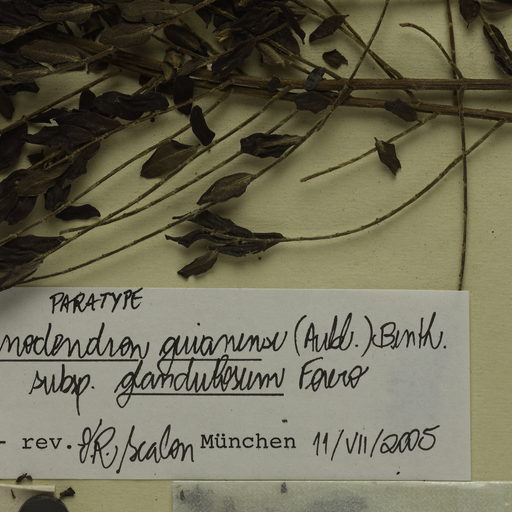 PARATYPE
nodendron guianense (Aubl.) Benth.
subsp. glandulosum Forero
- rev. VR. Scalon München 11/VII/2005